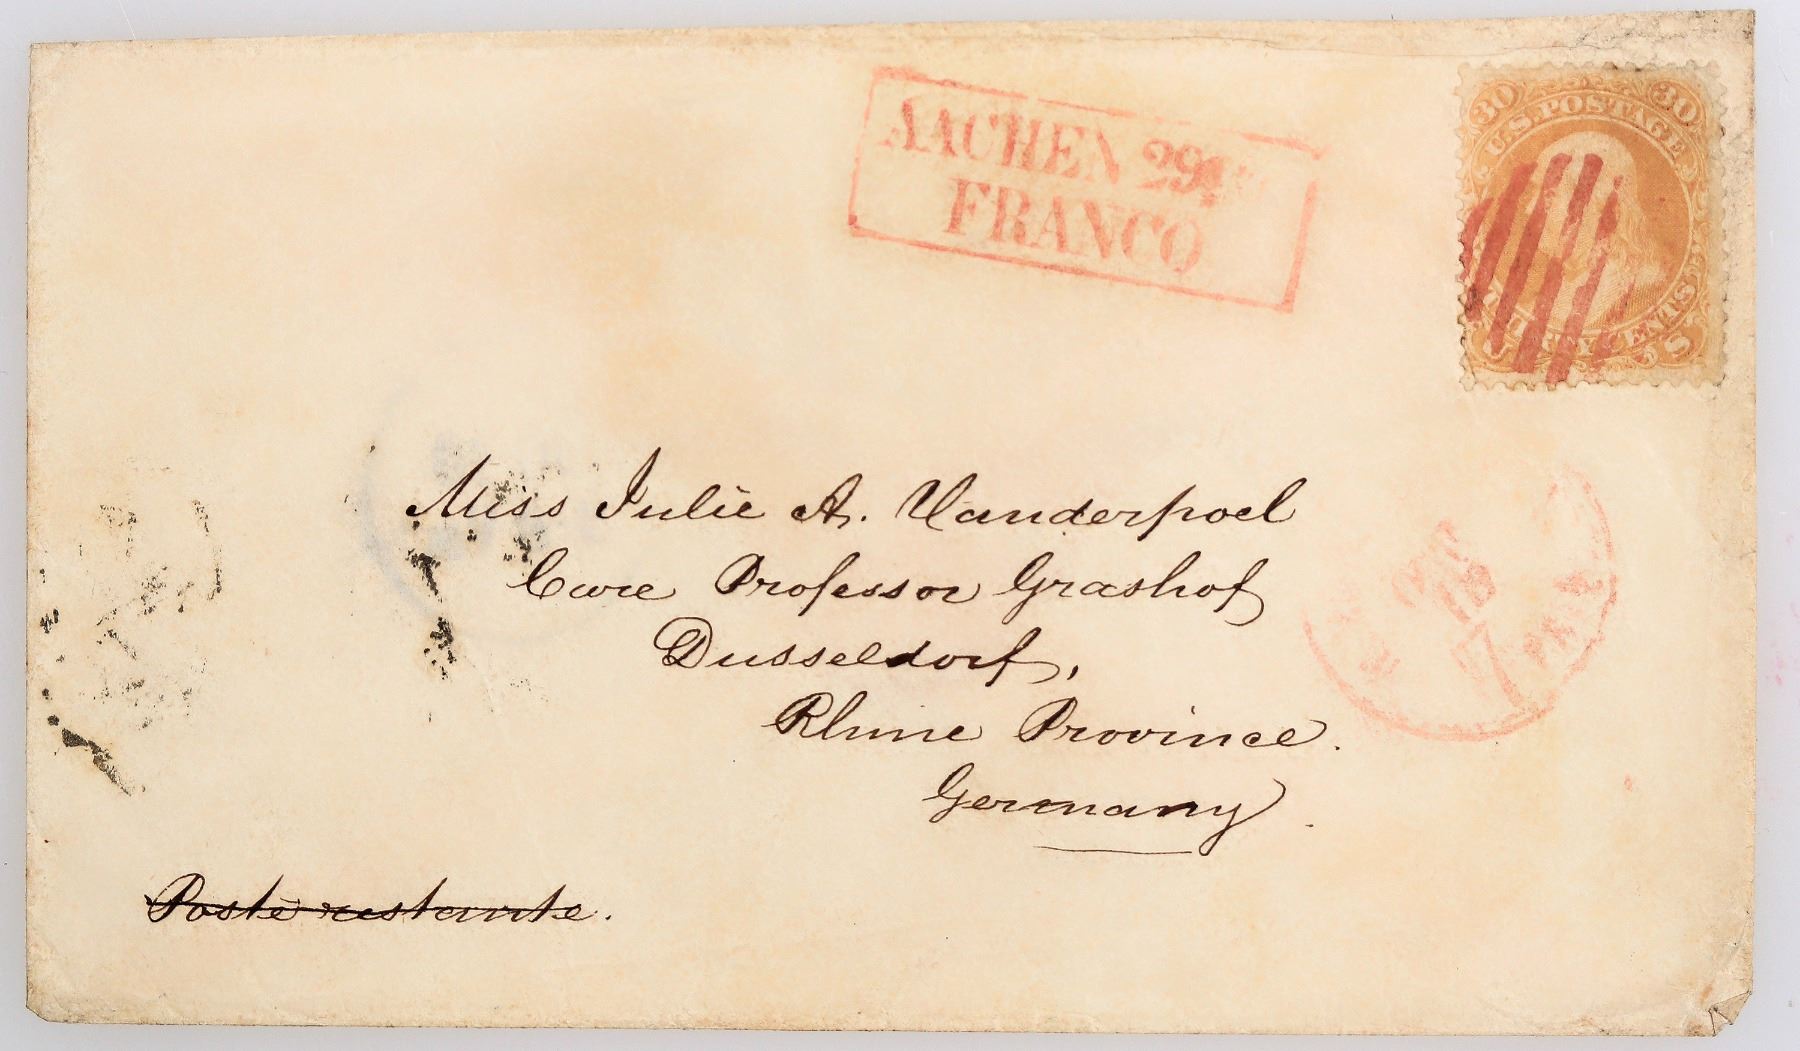 AACHEN 29
FRANCO
30 30
U.S. POSTAGE
THIRTY CENTS
U S
Miss Julie A. Vanderpoel
Care Professor Grashof
Dusseldorf,
Rhine Province.
Germany
Poste restante.
7